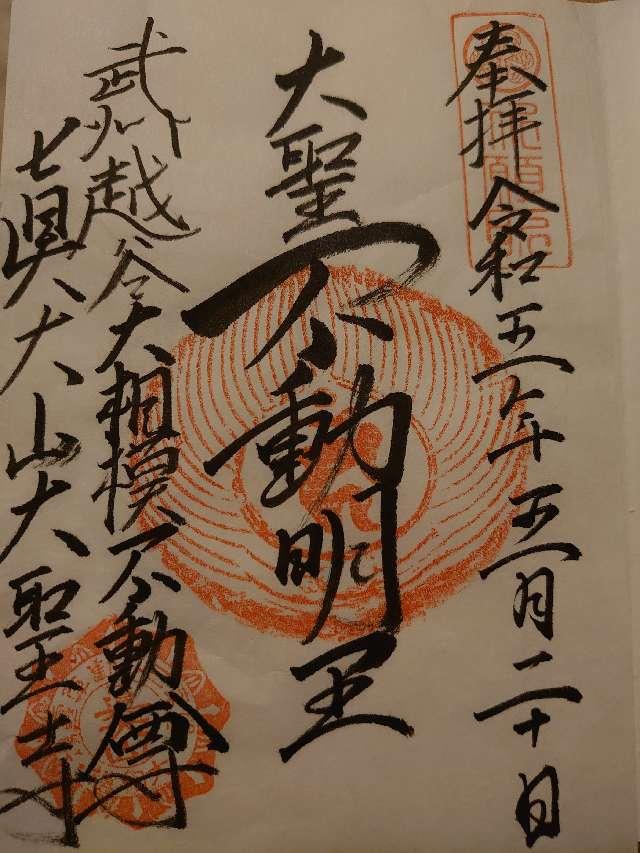 奉拝 令和五年五月二十日
大聖不動明王
武州越谷大相模不動尊
真大山大聖寺